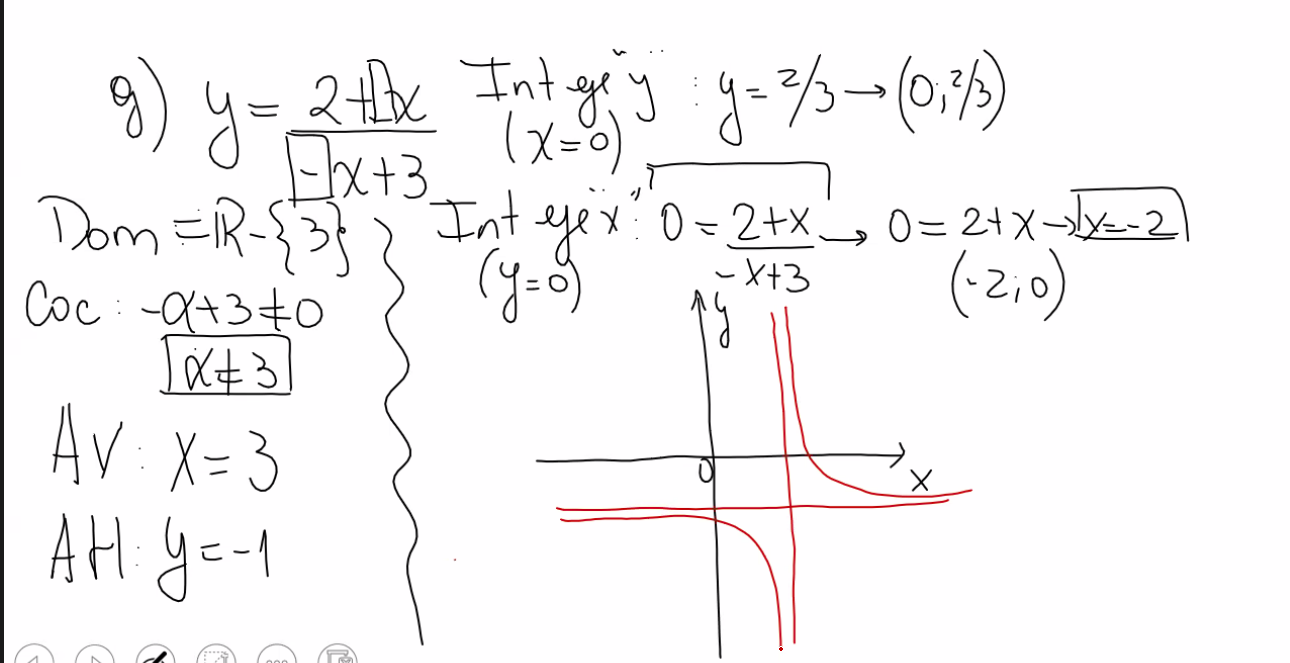 g) y = 2+1x / -x+3
Dom = ℝ-{3}
Coc: -x+3≠0
x≠3
AV: x=3
AH: y=-1
Int eje y : y = 2/3 → (0;2/3)
(x=0)
Int eje x : 0 = 2+x / -x+3 → 0 = 2+x → x=-2
(y=0) (-2;0)
y
0
x